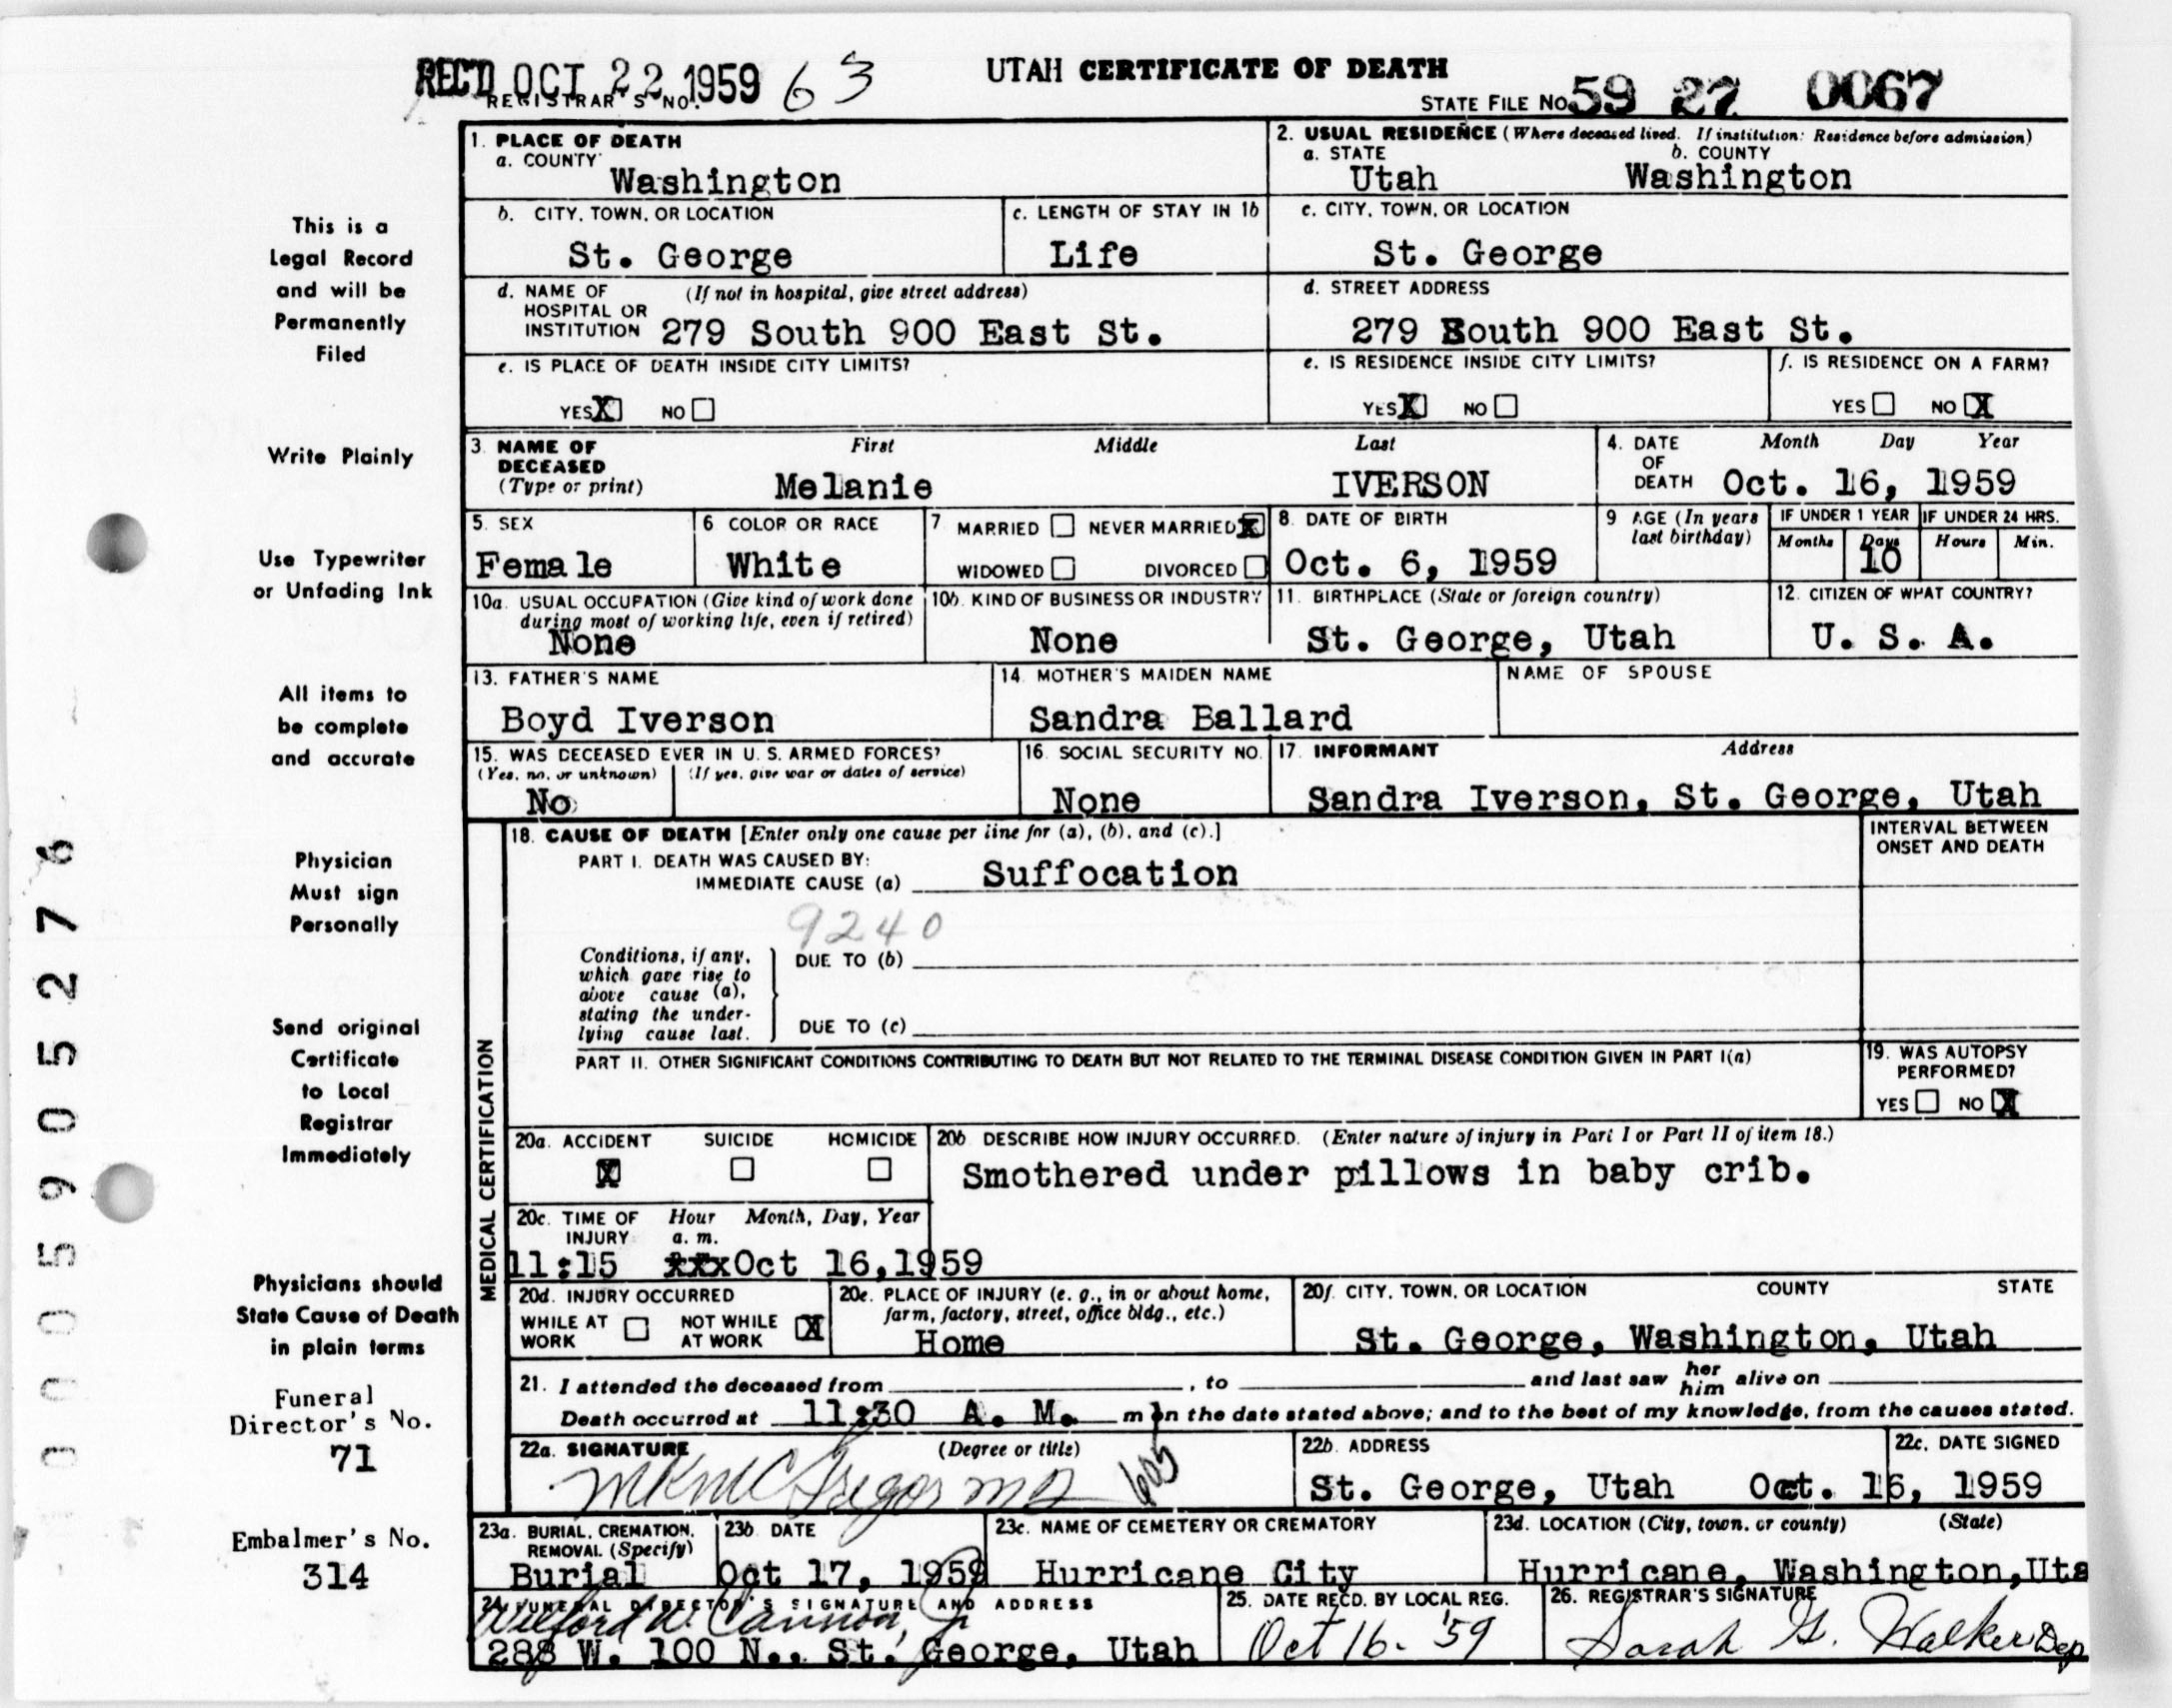 REC'D OCT 22 1959 63
REGISTRAR'S NO.
UTAH CERTIFICATE OF DEATH
STATE FILE NO. 59 27 0067
This is a
Legal Record
and will be
Permanently
Filed
Write Plainly
Use Typewriter
or Unfading Ink
All items to
be complete
and accurate
Physician
Must sign
Personally
Send original
Certificate
to Local
Registrar
Immediately
Physicians should
State Cause of Death
in plain terms
Funeral
Director's No.
71
Embalmer's No.
314
0005905276
1. PLACE OF DEATH
a. COUNTY
Washington
2. USUAL RESIDENCE (Where deceased lived. If institution: Residence before admission)
a. STATE b. COUNTY
Utah Washington
b. CITY, TOWN, OR LOCATION
St. George
c. LENGTH OF STAY IN 1b
Life
c. CITY, TOWN, OR LOCATION
St. George
d. NAME OF (If not in hospital, give street address)
HOSPITAL OR
INSTITUTION 279 South 900 East St.
d. STREET ADDRESS
279 South 900 East St.
e. IS PLACE OF DEATH INSIDE CITY LIMITS?
YES X NO
e. IS RESIDENCE INSIDE CITY LIMITS?
YES X NO
f. IS RESIDENCE ON A FARM?
YES NO X
3. NAME OF First Middle Last
DECEASED
(Type or print) Melanie IVERSON
4. DATE Month Day Year
OF
DEATH Oct. 16, 1959
5. SEX
Female
6 COLOR OR RACE
White
7 MARRIED NEVER MARRIED X
WIDOWED DIVORCED
8. DATE OF BIRTH
Oct. 6, 1959
9 AGE (In years
last birthday)
IF UNDER 1 YEAR IF UNDER 24 HRS.
Months Days Hours Min.
10
10a. USUAL OCCUPATION (Give kind of work done
during most of working life, even if retired)
None
10b. KIND OF BUSINESS OR INDUSTRY
None
11. BIRTHPLACE (State or foreign country)
St. George, Utah
12. CITIZEN OF WHAT COUNTRY?
U. S. A.
13. FATHER'S NAME
Boyd Iverson
14. MOTHER'S MAIDEN NAME
Sandra Ballard
NAME OF SPOUSE
15. WAS DECEASED EVER IN U. S. ARMED FORCES?
(Yes, no, or unknown) (If yes, give war or dates of service)
No
16. SOCIAL SECURITY NO.
None
17. INFORMANT Address
Sandra Iverson, St. George, Utah
MEDICAL CERTIFICATION
18. CAUSE OF DEATH [Enter only one cause per line for (a), (b), and (c).]
PART I. DEATH WAS CAUSED BY:
IMMEDIATE CAUSE (a) Suffocation
INTERVAL BETWEEN
ONSET AND DEATH
9240
Conditions, if any,
which gave rise to
above cause (a),
stating the under-
lying cause last.
DUE TO (b)
DUE TO (c)
PART II. OTHER SIGNIFICANT CONDITIONS CONTRIBUTING TO DEATH BUT NOT RELATED TO THE TERMINAL DISEASE CONDITION GIVEN IN PART I(a)
19. WAS AUTOPSY
PERFORMED?
YES NO X
20a. ACCIDENT SUICIDE HOMICIDE
X
20b DESCRIBE HOW INJURY OCCURRED. (Enter nature of injury in Part I or Part II of item 18.)
Smothered under pillows in baby crib.
20c. TIME OF Hour Month, Day, Year
INJURY a. m.
11:15 xxx Oct 16, 1959
20d. INJURY OCCURRED
WHILE AT NOT WHILE X
WORK AT WORK
20e. PLACE OF INJURY (e. g., in or about home,
farm, factory, street, office bldg., etc.)
Home
20f. CITY, TOWN, OR LOCATION COUNTY STATE
St. George, Washington, Utah
21. I attended the deceased from , to and last saw her him alive on
Death occurred at 11:30 A. M. m on the date stated above; and to the best of my knowledge, from the causes stated.
22a. SIGNATURE (Degree or title)
MKMcGregor MD
22b. ADDRESS
St. George, Utah
22c. DATE SIGNED
Oct. 16, 1959
23a. BURIAL, CREMATION,
REMOVAL (Specify)
Burial
23b DATE
Oct 17, 1959
23c. NAME OF CEMETERY OR CREMATORY
Hurricane City
23d. LOCATION (City, town, or county) (State)
Hurricane, Washington, Uta
24. FUNERAL DIRECTOR'S SIGNATURE AND ADDRESS
Wilford W. Cannon, Jr
288 W. 100 N., St. George, Utah
25. DATE RECD. BY LOCAL REG.
Oct 16- '59
26. REGISTRAR'S SIGNATURE
Sarah G. Walker Dep